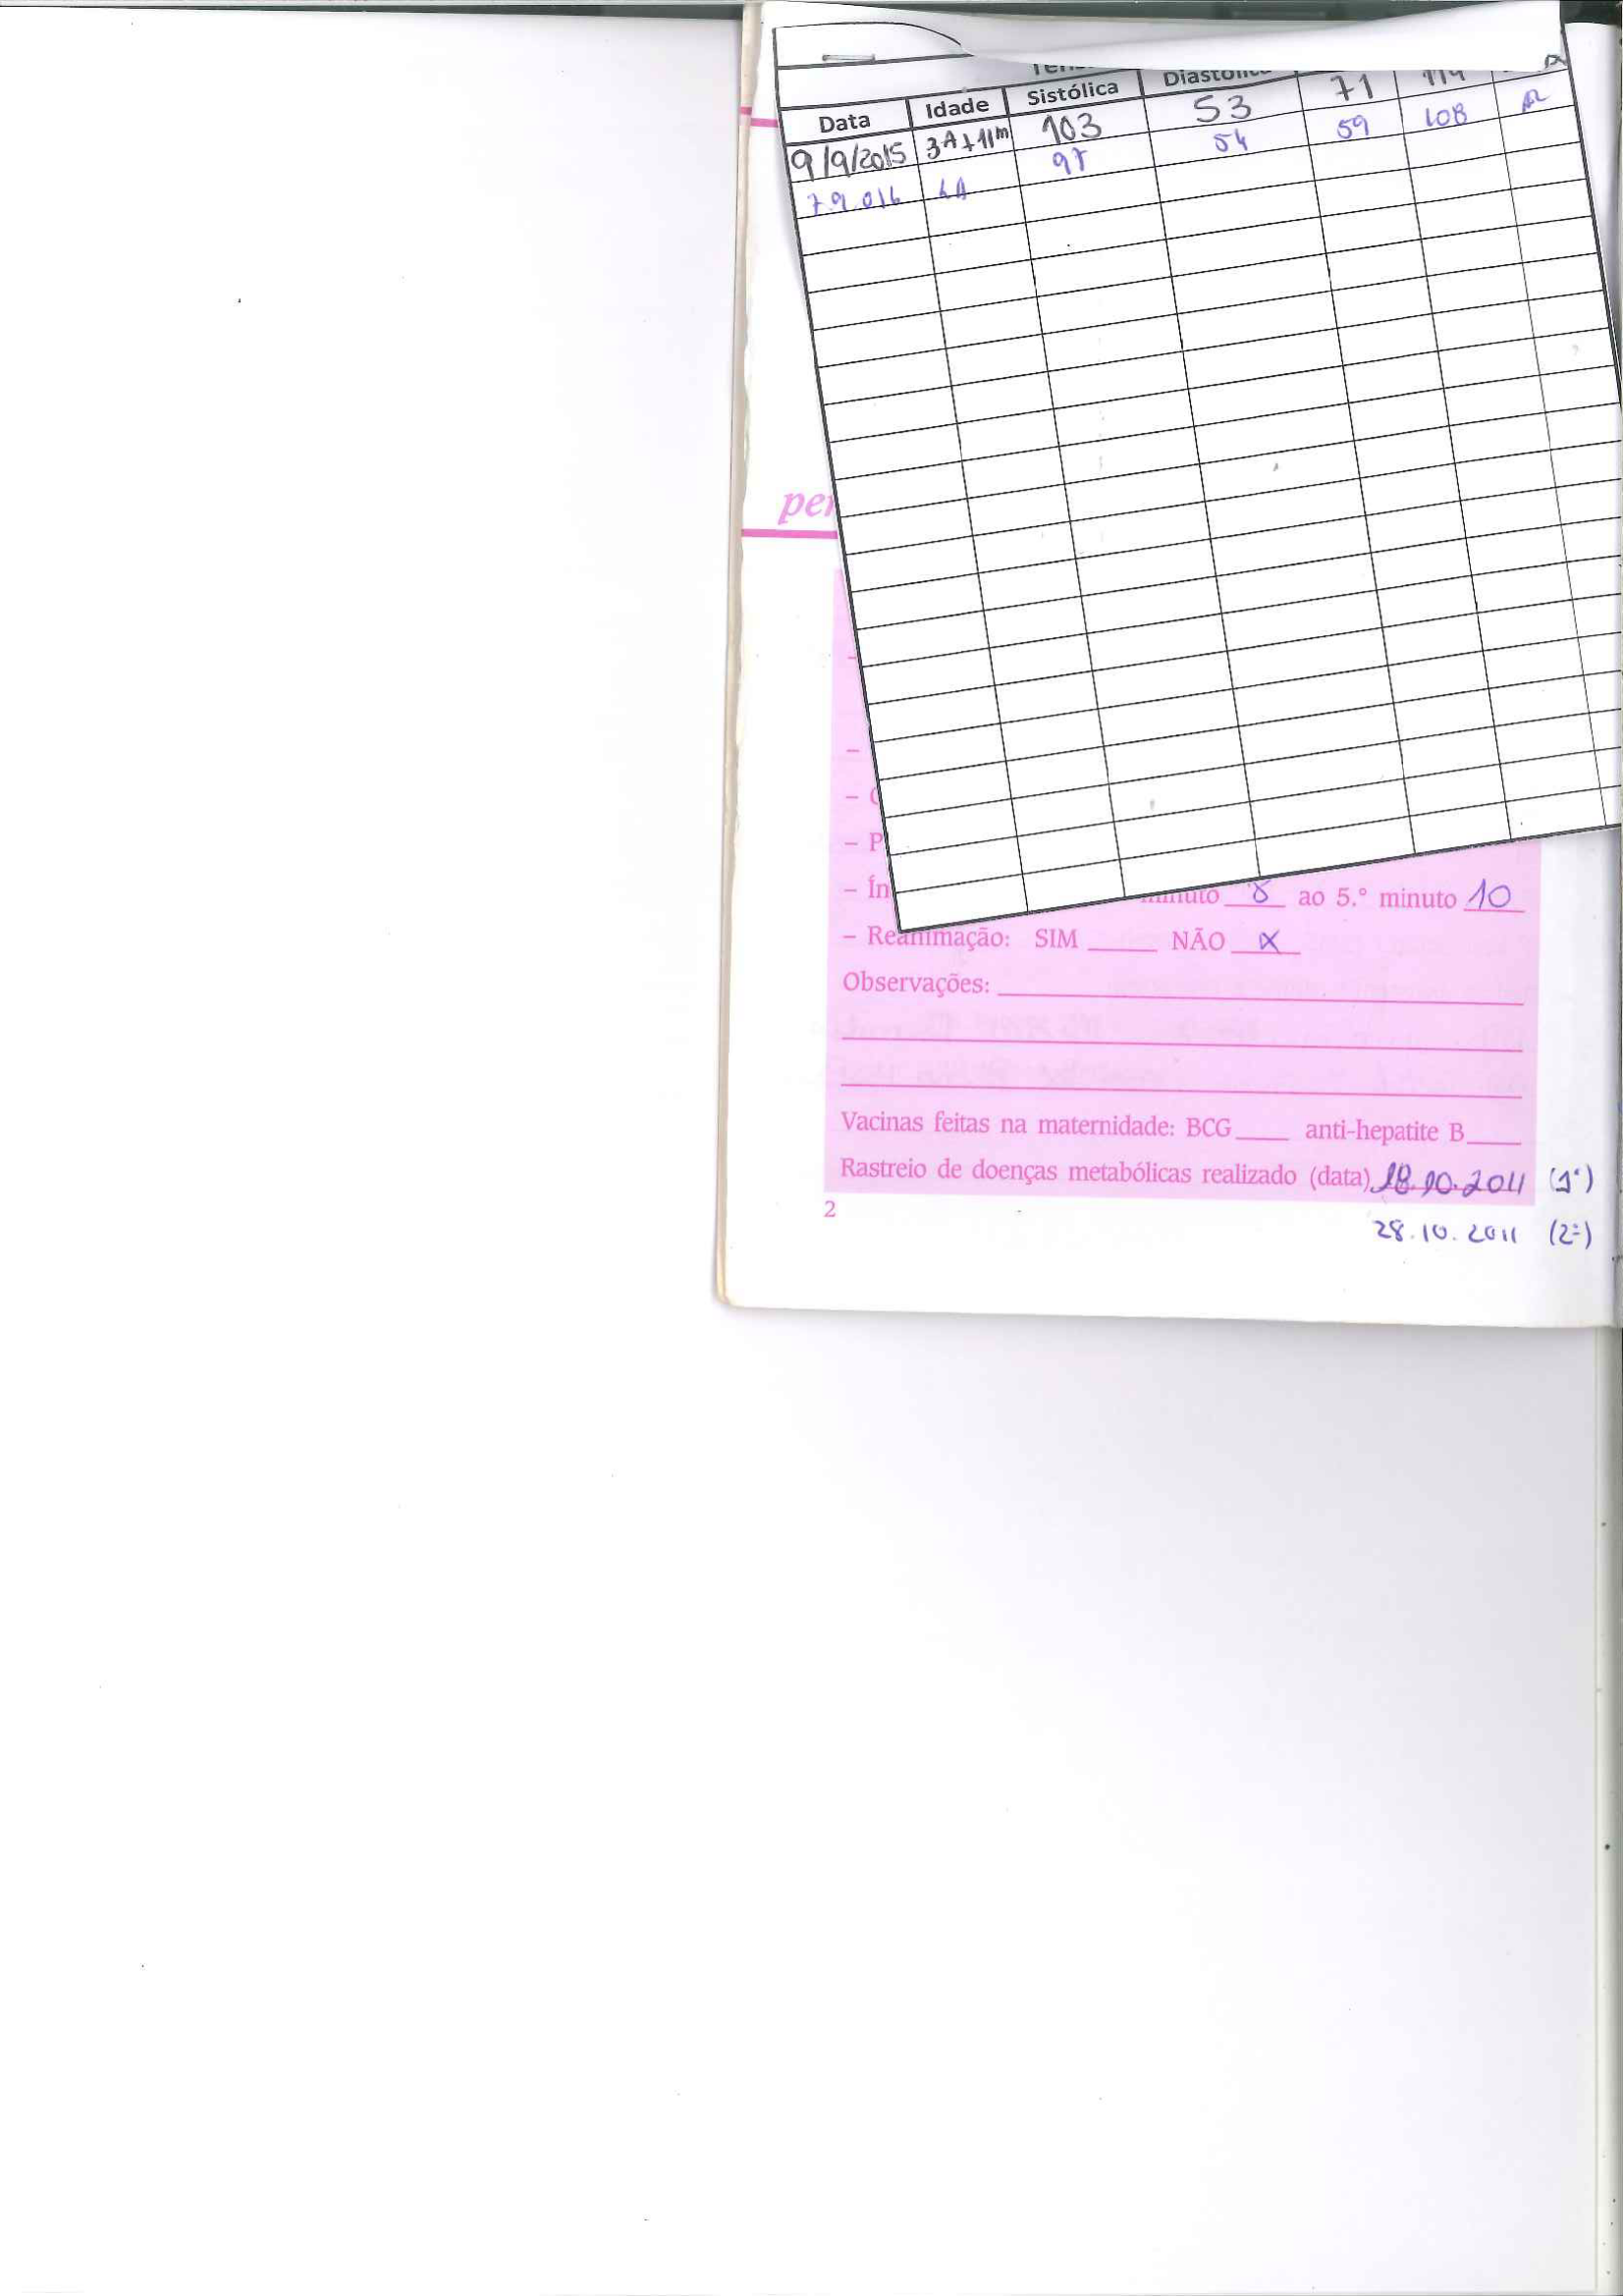 Diastólic
Data Idade Sistólica
9/9/2015 3A+11m 103 53 71 114
7.9.016 4A 97 54 59 108
per
– P
– Ín minuto 8 ao 5.° minuto 10
– Reanimação: SIM NÃO X
Observações:
Vacinas feitas na maternidade: BCG anti-hepatite B
Rastreio de doenças metabólicas realizado (data) 18.10.2011 (1ª)
2
28.10.2011 (2ª)